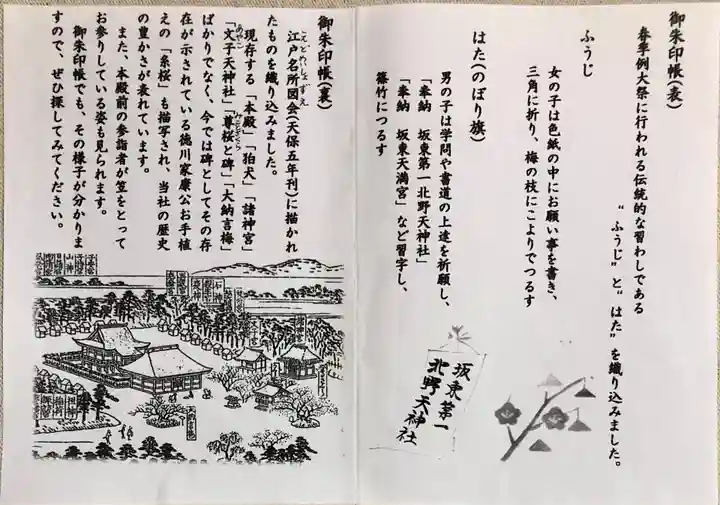 御朱印帳（表）
春季例大祭に行われる伝統的な習わしである
“ふうじ”と“はた”を織り込みました。
ふうじ
女の子は色紙の中にお願い事を書き、
三角に折り、梅の枝にこよりでつるす
はた（のぼり旗）
男の子は学問や書道の上達を祈願し、
「奉納　坂東第一北野天神社」
「奉納　坂東天満宮」など習字し、
篠竹につるす
坂東第一
北野天神社
御朱印帳（裏）
江戸名所図会（天保五年刊）に描かれ
たものを織り込みました。
現存する「本殿」「狛犬」「諸神宮」
「文子天神社」「尊桜と碑」「大納言梅」
ばかりでなく、今では碑としてその存
在が示されている徳川家康公お手植
えの「糸桜」も描写され、当社の歴史
の豊かさが表れています。
また、本殿前の参詣者が笠をとって
お参りしている姿も見られます。
御朱印帳でも、その様子が分かりま
すので、ぜひ探してみてください。